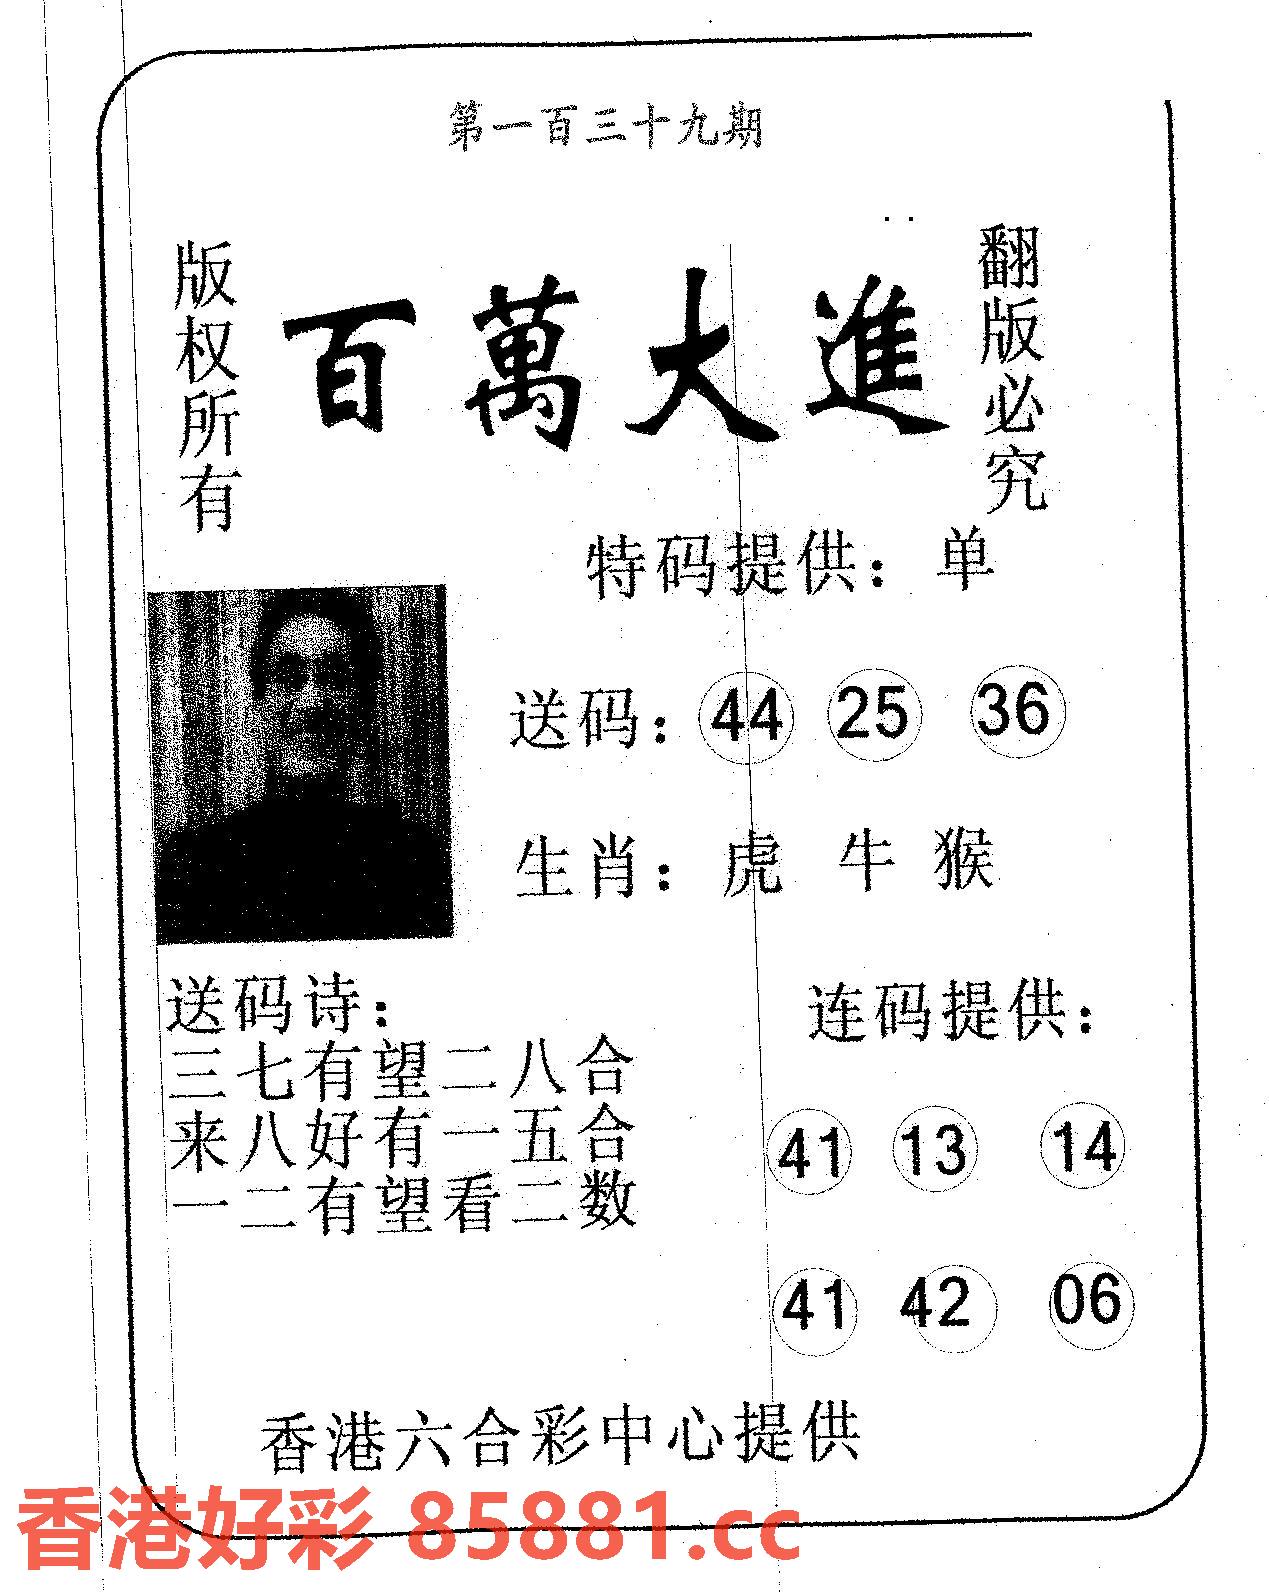 第一百三十九期
版权所有
百萬大進
翻版必究
特码提供：单
送码：44 25 36
生肖：虎 牛 猴
送码诗：
三七有望二八合
来八好有一五合
一二有望看二数
连码提供：
41 13 14
41 42 06
香港六合彩中心提供
香港好彩 85881.cc